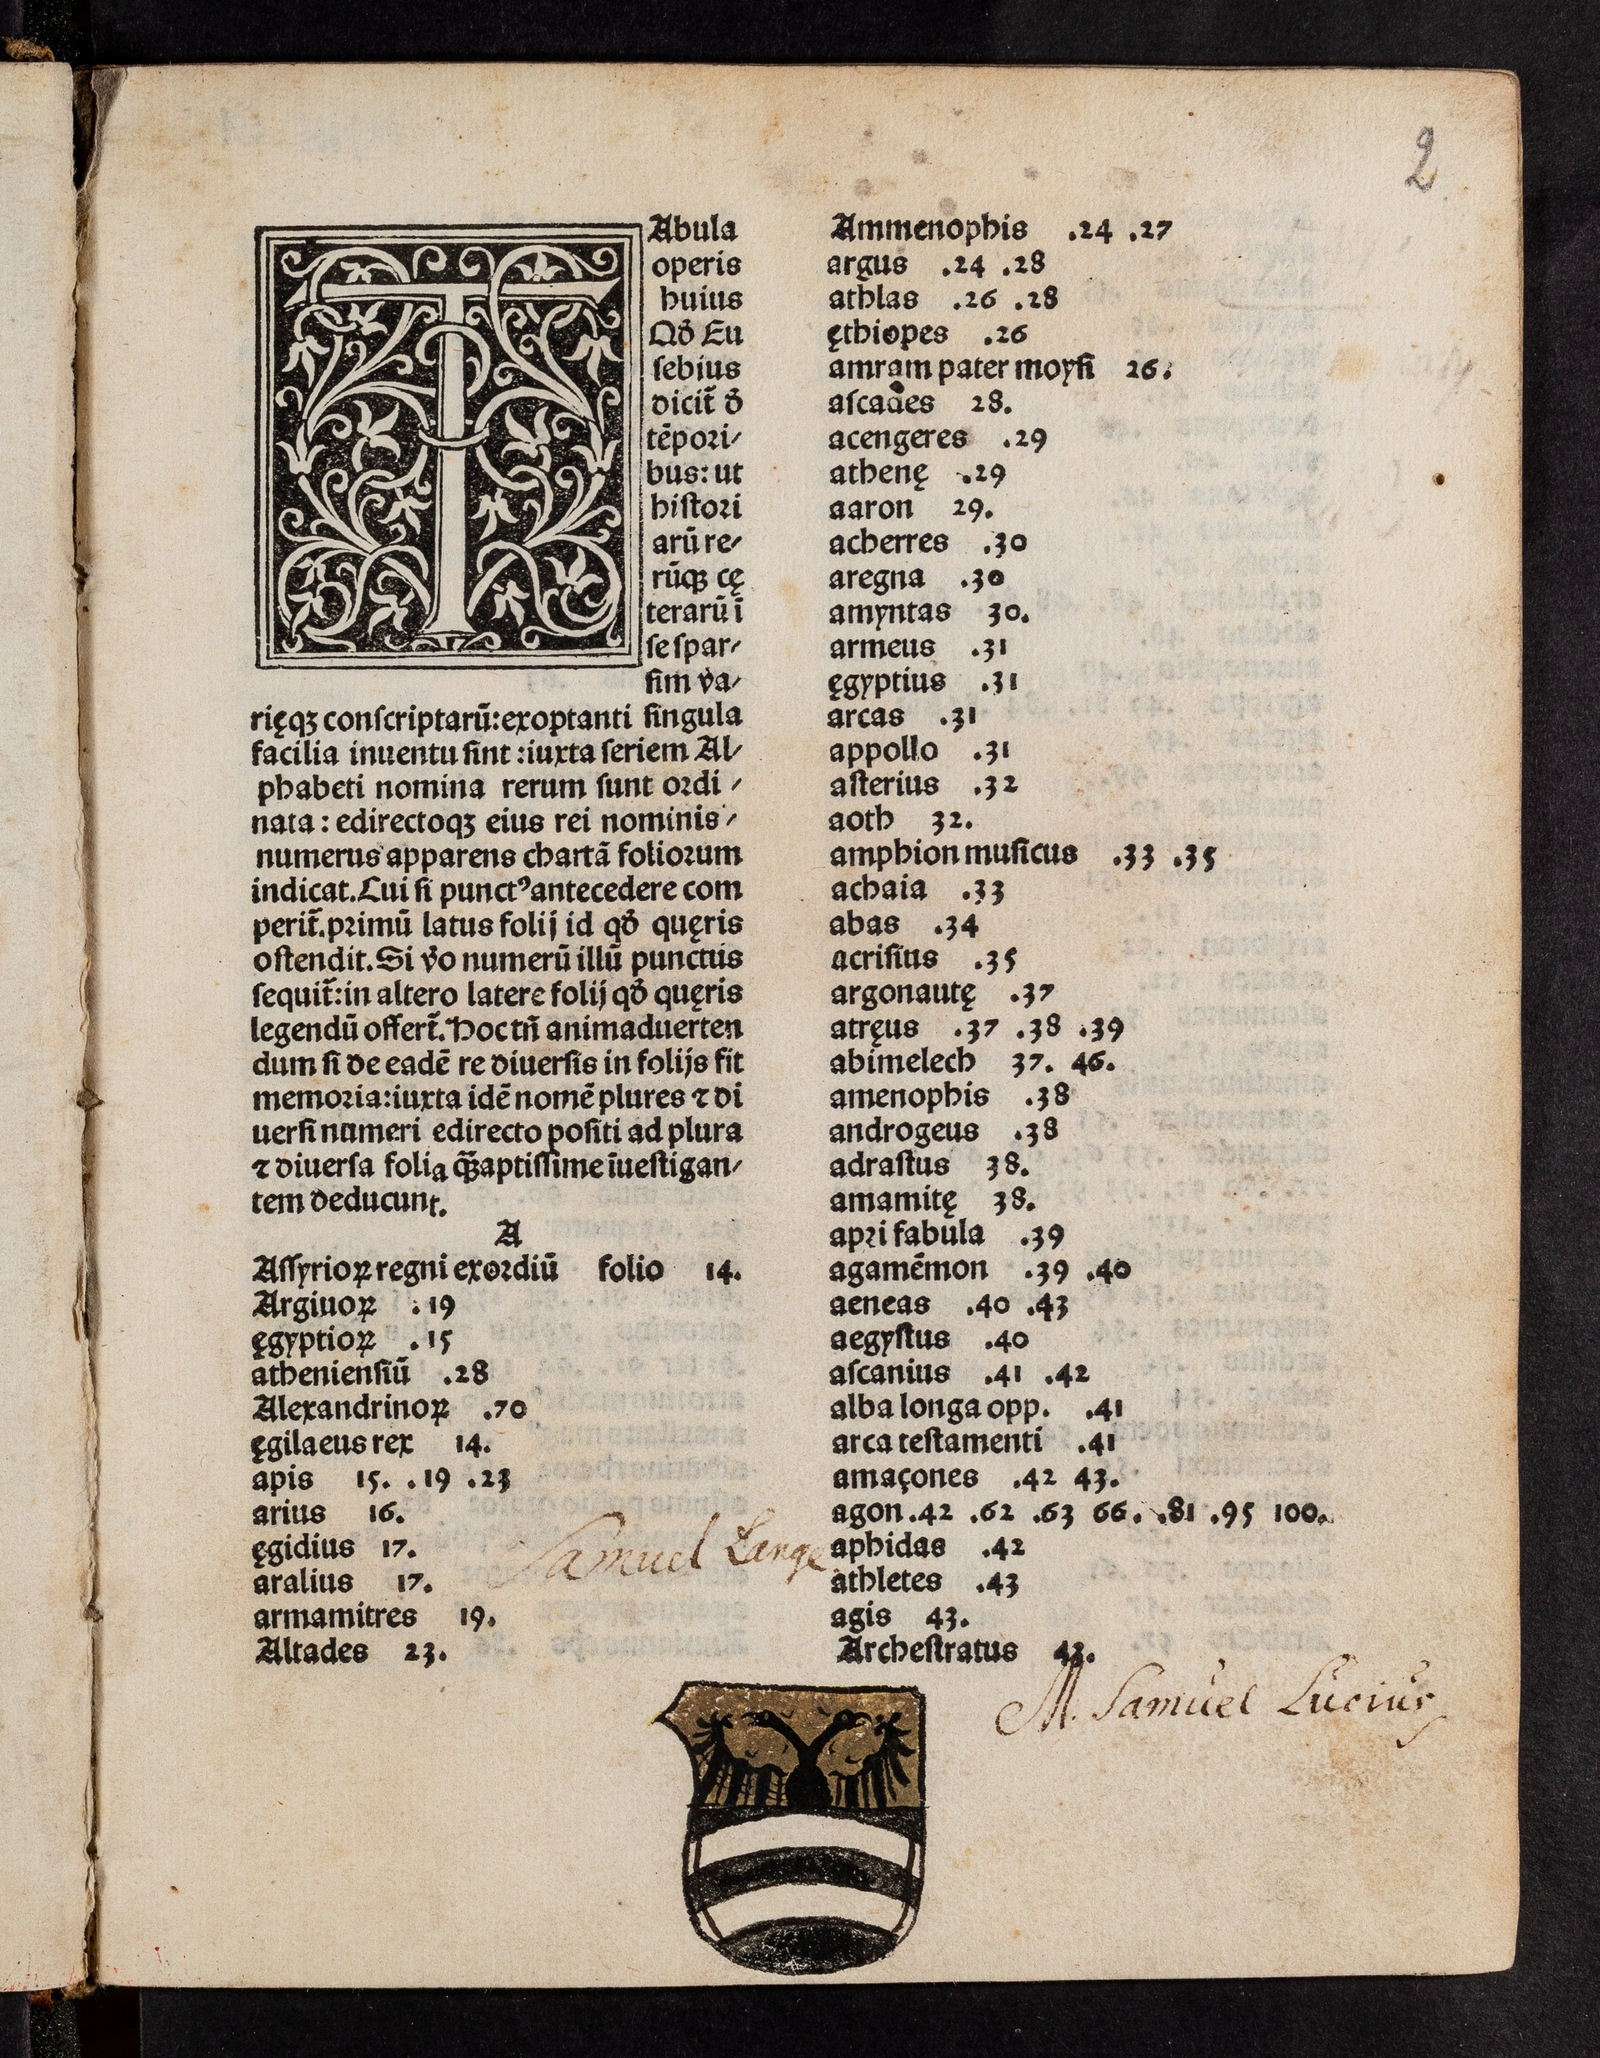 2
TAbula
operis
huius
Qđ Eu
sebius
dicit̃ đ
tēpori/
bus: ut
histori
arū re/
rūqꝫ cę
terarū ī
se spar/
sim va/
rięqꝫ conscriptarū: exoptanti singula
facilia inuentu sint: iuxta seriem Al/
phabeti nomina rerum sunt ordi/
nata: edirectoqꝫ eius rei nominis/
numerus apparens chartā foliorum
indicat. Cui si punctꝰ antecedere com
perit̃. primū latus folij id qđ quęris
ostendit. Si v̊o numerū illū punctus
sequit̃: in altero latere folij qđ quęris
legendū offert̃. Hoc tñ animaduerten
dum si de eadē re diuersis in folijs fit
memoria: iuxta idē nomē plures ⁊ di
uersi numeri edirecto positi ad plura
⁊ diuersa folia q̃ꝫaptissime īuestigan/
tem deducunt.
A
Assyrioꝝ regni exordiū folio 14.
Argiuoꝝ .19
ęgyptioꝝ .15
atheniensiū .28
Alexandrinoꝝ .70
ęgilaeus rex 14.
apis 15. .19 .23
arius 16.
ęgidius 17.
aralius 17.
armamitres 19.
Altades 23.
Samuel Lange
Ammenophis .24 .27
argus .24 .28
athlas .26 .28
ęthiopes .26
amram pater moysi 26.
ascades 28.
acengeres .29
athenę .29
aaron 29.
acherres .30
aregna .30
amyntas 30.
armeus .31
ęgyptius .31
arcas .31
appollo .31
asterius .32
aoth 32.
amphion musicus .33 .35
achaia .33
abas .34
acrisius .35
argonautę .37
atręus .37 .38 .39
abimelech 37. 46.
amenophis .38
androgeus .38
adrastus 38.
amamitę 38.
apri fabula .39
agamēmon .39 .40
aeneas .40 .43
aegystus .40
ascanius .41 .42
alba longa opp. .41
arca testamenti .41
amaçones .42 43.
agon .42 .62 .63 66. .81 .95 100.
aphidas .42
athletes .43
agis 43.
Archestratus 43.
M. Samuel Lucius